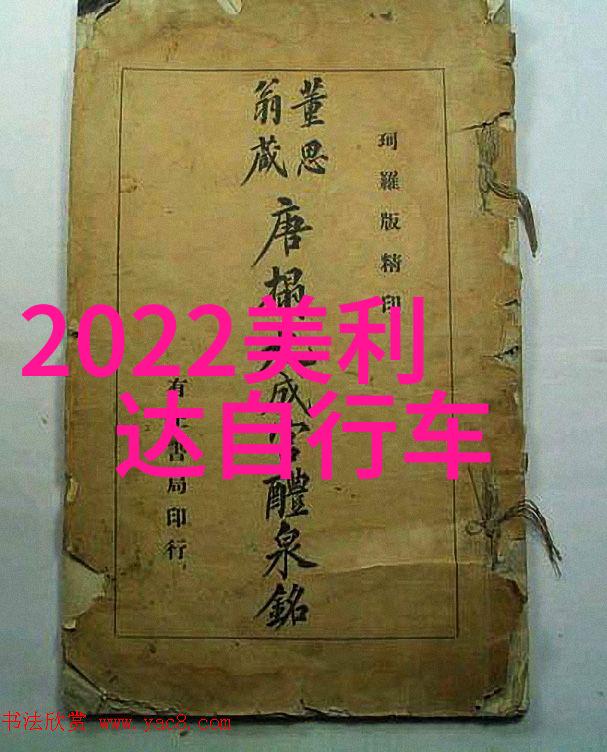 珂羅版精印
董思
翁藏
唐搨九成宮醴泉銘
有正書局印行
2022美利
达自行车
书法欣赏 www.yac8.com